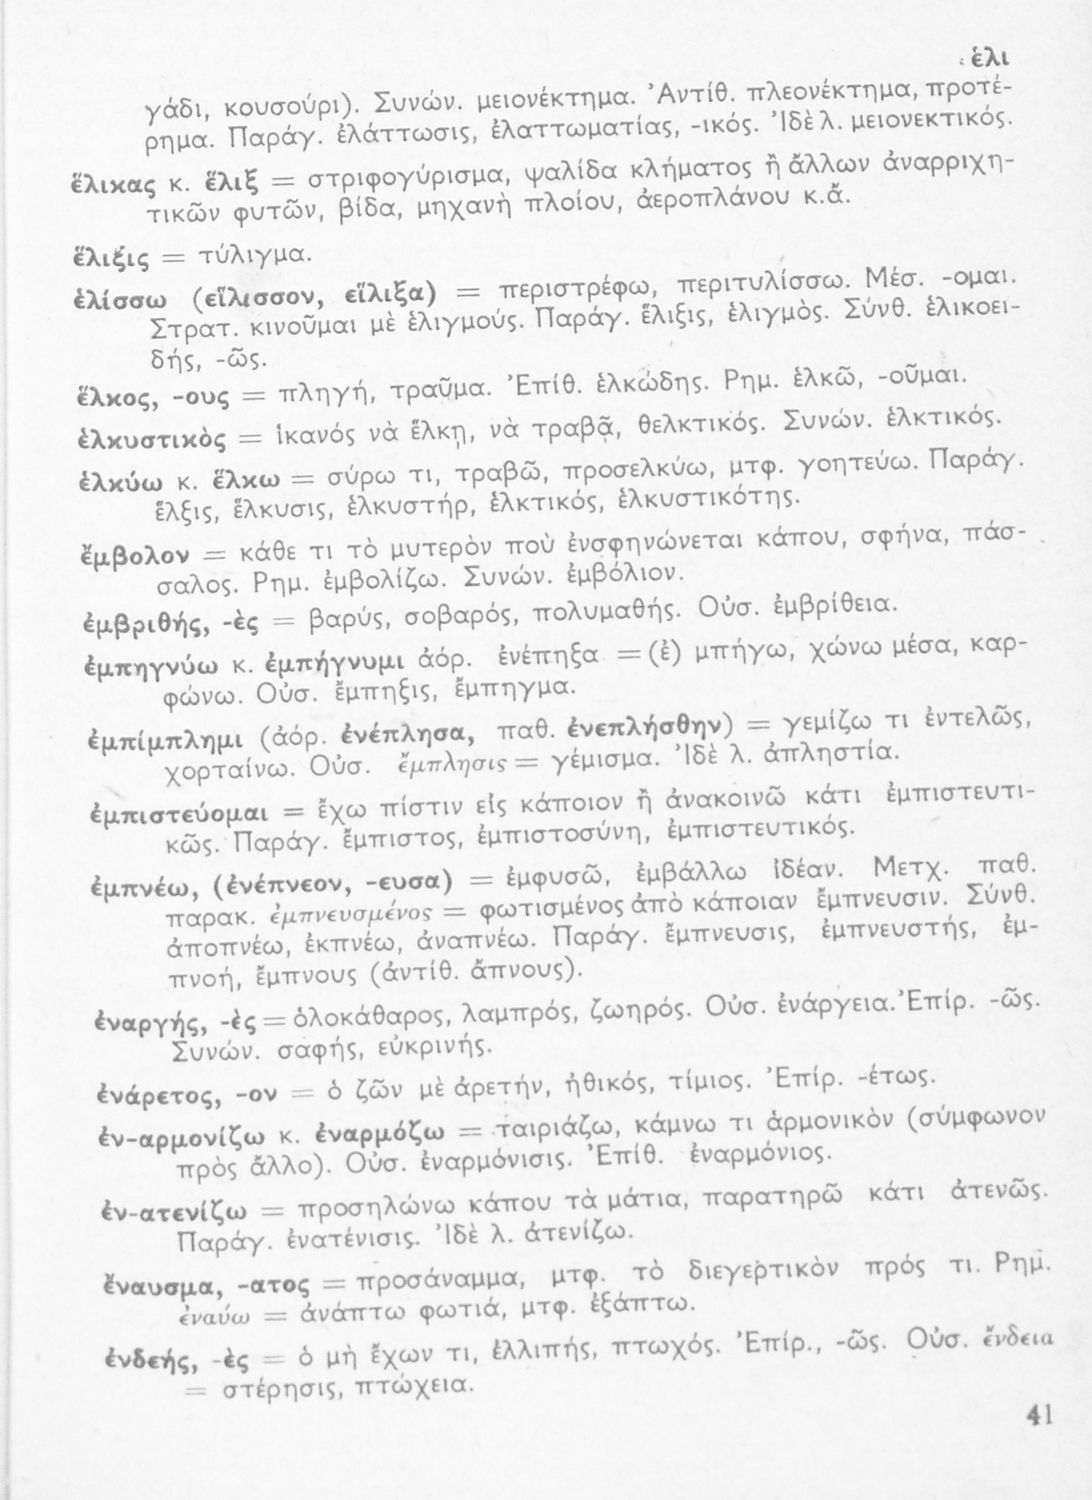 ἑλι
γάδι, κουσούρι). Συνών. μειονέκτημα. Ἀντίθ. πλεονέκτημα, προτέ-
ρημα. Παράγ. ἐλάττωσις, ἐλαττωματίας, -ικός. Ἰδὲ λ. μειονεκτικός.
ἕλικας κ. ἕλιξ = στριφογύρισμα, ψαλίδα κλήματος ἢ ἄλλων ἀναρριχη-
τικῶν φυτῶν, βίδα, μηχανὴ πλοίου, ἀεροπλάνου κ.ἄ.
ἕλιξις = τύλιγμα.
ἑλίσσω (εἵλισσον, εἵλιξα) = περιστρέφω, περιτυλίσσω. Μέσ. -ομαι.
Στρατ. κινοῦμαι μὲ ἑλιγμούς. Παράγ. ἕλιξις, ἑλιγμὸς. Σύνθ. ἑλικοει-
δής, -ῶς.
ἕλκος, -ους = πληγή, τραῦμα. Ἐπίθ. ἑλκώδης. Ρημ. ἑλκῶ, -οῦμαι.
ἑλκυστικὸς = ἱκανός νὰ ἕλκῃ, νὰ τραβᾷ, θελκτικός. Συνών. ἑλκτικός.
ἑλκύω κ. ἕλκω = σύρω τι, τραβῶ, προσελκύω, μτφ. γοητεύω. Παράγ.
ἕλξις, ἕλκυσις, ἑλκυστήρ, ἑλκτικός, ἑλκυστικότης.
ἔμβολον = κάθε τι τὸ μυτερὸν ποὺ ἐνσφηνώνεται κάπου, σφήνα, πάσ-
σαλος. Ρημ. ἐμβολίζω. Συνών. ἐμβόλιον.
ἐμβριθής, -ὲς = βαρύς, σοβαρός, πολυμαθής. Οὐσ. ἐμβρίθεια.
ἐμπηγνύω κ. ἐμπήγνυμι ἀόρ. ἐνέπηξα = (ἐ) μπήγω, χώνω μέσα, καρ-
φώνω. Οὐσ. ἔμπηξις, ἔμπηγμα.
ἐμπίμπλημι (ἀόρ. ἐνέπλησα, παθ. ἐνεπλήσθην) = γεμίζω τι ἐντελῶς,
χορταίνω. Οὐσ. ἔμπλησις = γέμισμα. Ἰδὲ λ. ἀπληστία.
ἐμπιστεύομαι = ἔχω πίστιν εἰς κάποιον ἢ ἀνακοινῶ κάτι ἐμπιστευτι-
κῶς. Παράγ. ἔμπιστος, ἐμπιστοσύνη, ἐμπιστευτικός.
ἐμπνέω, (ἐνέπνεον, -ευσα) = ἐμφυσῶ, ἐμβάλλω ἰδέαν. Μετχ. παθ.
παρακ. ἐμπνευσμένος = φωτισμένος ἀπὸ κάποιαν ἔμπνευσιν. Σύνθ.
ἀποπνέω, ἐκπνέω, ἀναπνέω. Παράγ. ἔμπνευσις, ἐμπνευστής, ἐμ-
πνοή, ἔμπνους (ἀντίθ. ἄπνους).
ἐναργής, -ὲς = ὁλοκάθαρος, λαμπρός, ζωηρός. Οὐσ. ἐνάργεια. Ἐπίρ. -ῶς.
Συνών. σαφής, εὐκρινής.
ἐνάρετος, -ον = ὁ ζῶν μὲ ἀρετήν, ἠθικός, τίμιος. Ἐπίρ. -έτως.
ἐν-αρμονίζω κ. ἐναρμόζω = ταιριάζω, κάμνω τι ἁρμονικὸν (σύμφωνον
πρὸς ἄλλο). Οὐσ. ἐναρμόνισις. Ἐπίθ. ἐναρμόνιος.
ἐν-ατενίζω = προσηλώνω κάπου τὰ μάτια, παρατηρῶ κάτι ἀτενῶς.
Παράγ. ἐνατένισις. Ἰδὲ λ. ἀτενίζω.
ἔναυσμα, -ατος = προσάναμμα, μτφ. τὸ διεγερτικὸν πρός τι. Ρημ.
ἐναύω = ἀνάπτω φωτιά, μτφ. ἐξάπτω.
ἐνδεής, -ὲς = ὁ μὴ ἔχων τι, ἐλλιπής, πτωχός. Ἐπίρ., -ῶς. Οὐσ. ἔνδεια
= στέρησις, πτώχεια.
41